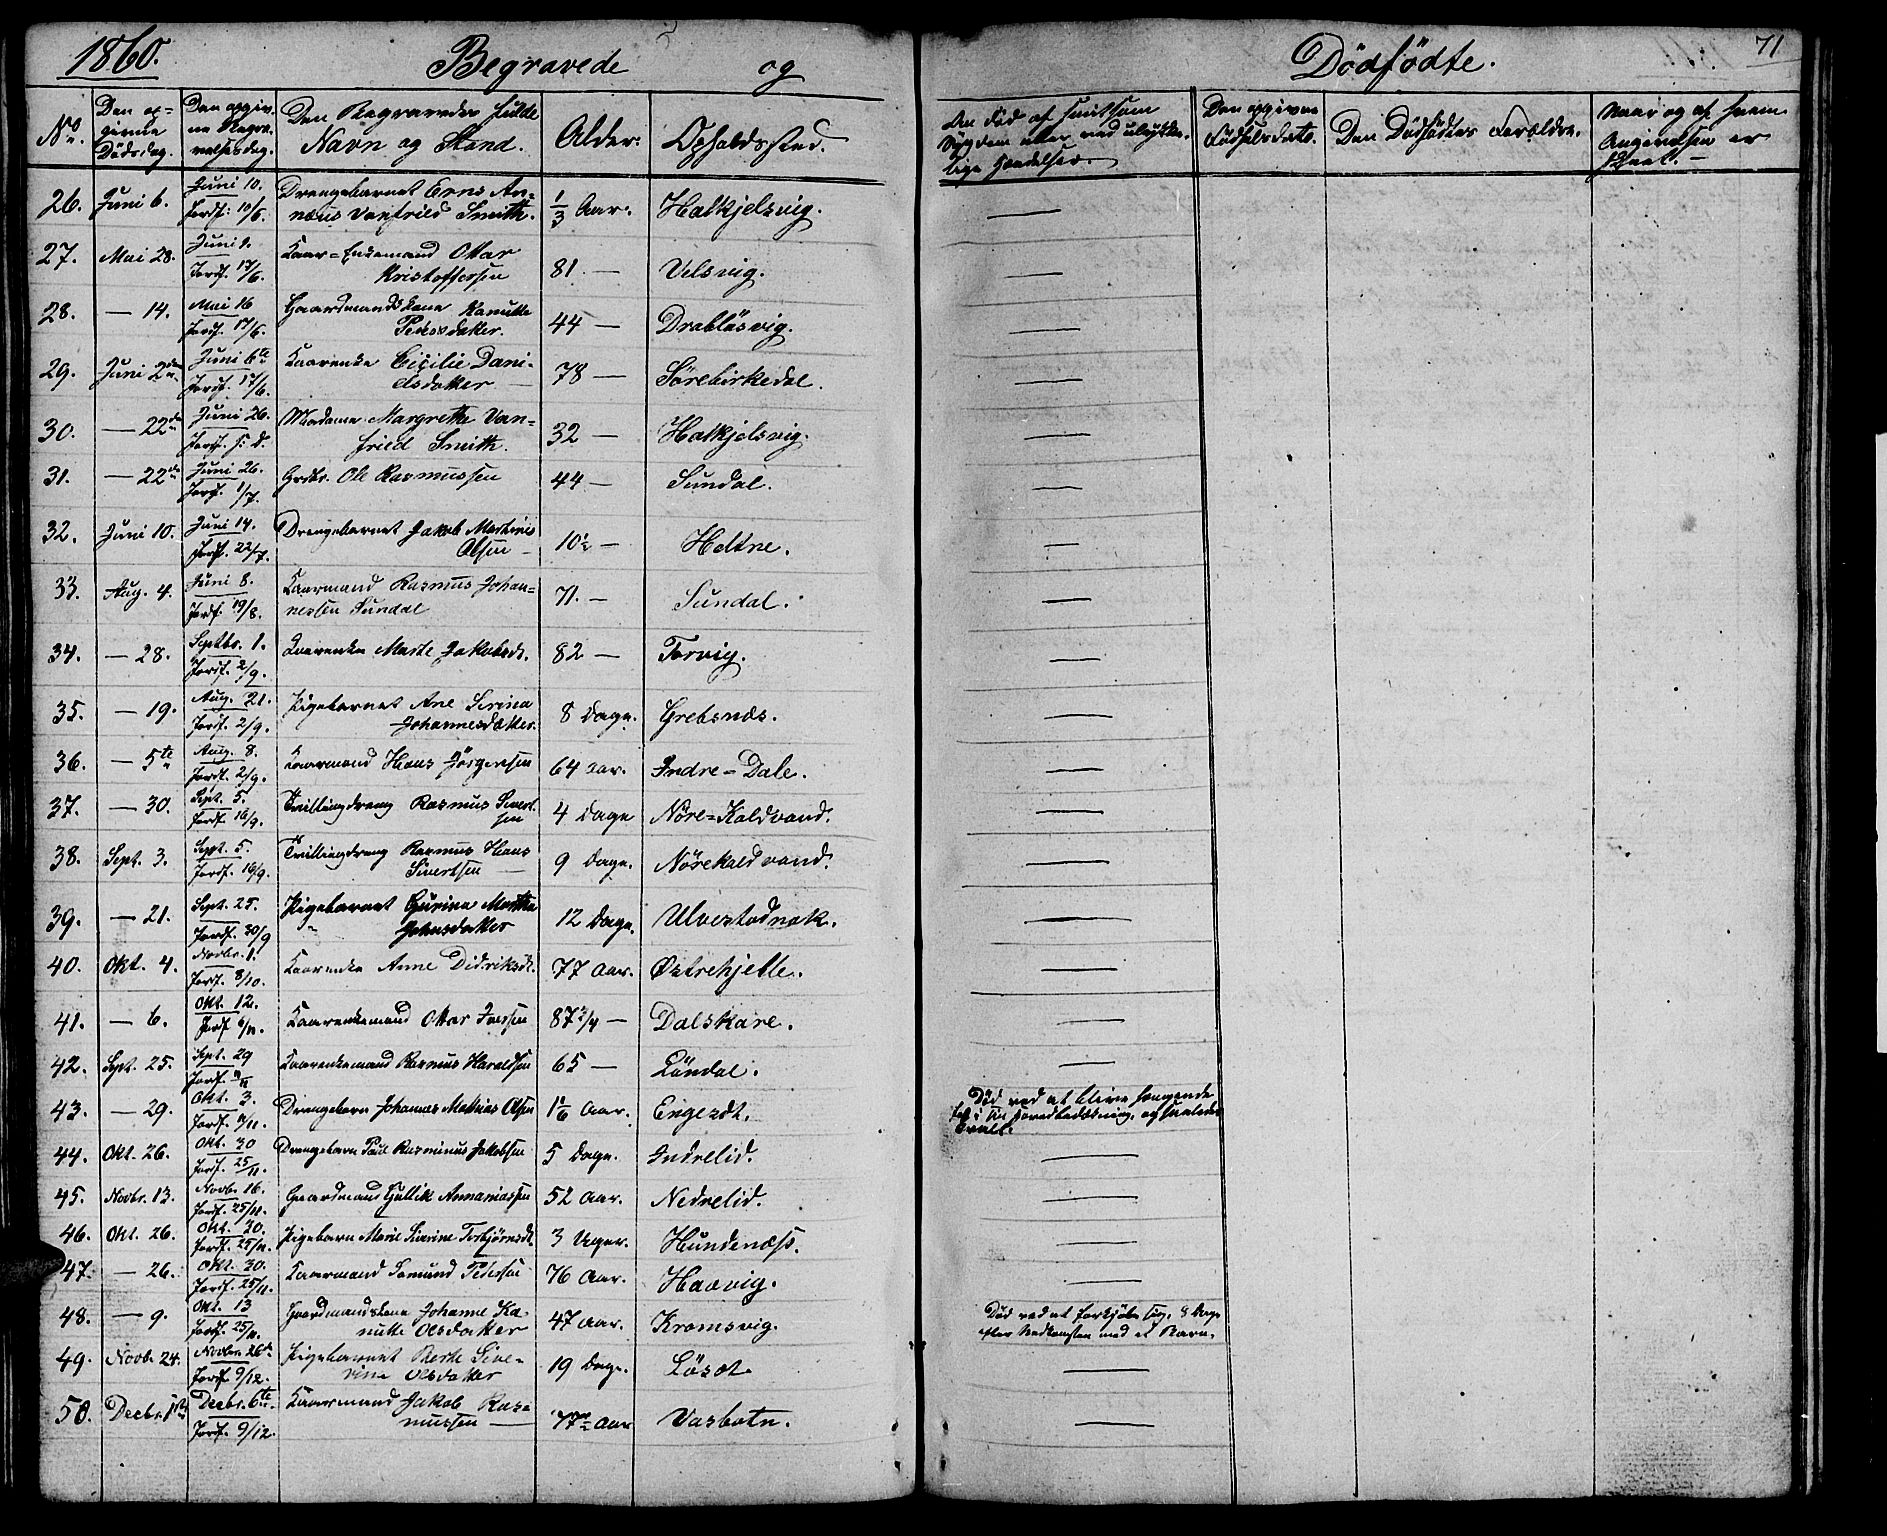 1860. Begravede og Dödfödte. 71
No. Den opgivne Dödsdag. Den opgivne Begravelsesdag. Den Begravedes fulde Navn og Stand. Alder. Opholdssted. Om död af smitsom Sygdom eller ved ulykkelige Hændelser. Den opgivne Födselsdato. Den Dödfödtes Forældre. Naar og af hvem Angivelsen er skeet.
26. Juni 6. Juni 10. Jordf. 10/6. Drengebarnet Erns Annæus Vanfried Smith. 1/3 Aar. Halkjelsvig. —
27. Mai 28. Juni Jordf. 17/6. Kaar-Enkemand Ottar Kristoffersen 81 — Velsvig. —
28. — 14. Mai 16 Jordf. 17/6. Gaardmandskone Kanutte Pedersdatter. 44 — Drabløsvig. —
29. Juni 2den Juni 6te Jordf. 17/6. Kaarenke Cicilie Danielsdatter — 78 — Sørebirkedal. —
30. — 22de Juni 26. Jordf. s. D. Madame Margrethe Vanfried Smith. 32 — Halkjelsvig. —
31. — 22de Juni 26. Jordf. 1/7. Grdbr. Ole Rasmussen 44 — Sundal. —
32. Juni 10. Juni 14. Jordf. 22/7. Drengebarnet Jakob Martinus Olsen — 10½ — Heltne. —
33. Aug. 4. Juni 8. Jordf. 19/8. Kaarmand Rasmus Johannessen Sundal 71. — Sundal. —
34. — 28. Septbr. 1. Jordf. 2/9. Kaarenke Marte Jakobsdt. 82 — Torvig. —
35. — 19. Aug. 21. Jordf. 2/9. Pigebarnet Ane Serina Johannesdatter. 8 Dage. Grebsnæs. —
36. — 5te Aug. 8. Jordf. 2/9. Kaarmand Hans Jörgensen 64 Aar. Indre-Dale. —
37. — 30. Sept. 5. Jordf. 16/9. Tvillingdreng Rasmus Sivertsen 4 Dage Nöre-Koldvand. —
38. Sept. 3. Sept. 5. Jordf. 16/9. Tvillingdreng Rasmus Hans Sivertsen — 9 Dage. Nörekoldvand. —
39. — 21. Sept. 25. Jordf. 30/9 Pigebarnet Gurine Martha Johnsdatter 12 Dage. Ulvestadnak. —
40. Okt. 4. Novbr. 1. Jordf. 8/10. Kaarenke Anne Didriksdt. 77 Aar. Østrehjelle. —
41. — 6. Okt. 12. Jordf. 6/11. Kaarenkemand Ottar Iversen 87 3/4 — Dalskare. —
42. Sept. 25. Sept. 29 Jordf. Kaarenkemand Rasmus Haraldsen 65 — Löndal. —
43. — 29. Okt. 3. Jordf. Drengebarn Johannes Mathias Olsen 1 1/6 Aar. Engesæt. Död ved at blive hængende fast i en og saaledes kvalt.
44. Okt. 26. Okt. 30 Jordf. 25/11. Drengebarn Paul Rasminus Jakobsen 5 Dage. Indrelid. —
45. Novbr. 13. Novbr. 16. Jordf. 25/11. Gaardmand Gullik Annaniassen 52 Aar. Nedrelid. —
46. Okt. 26. Okt. 30. Jordf. 25/11. Pigebarn Marie Sverine Torbjörnsdt. 3 Uger. Hundenæss. —
47. — 26. Okt. 30. Jordf. 25/11. Kaarmand Samund Pedersen 76 Aar. Haavig. —
48. — 9. Okt. 13 Jordf. 25/11. Gaardmandskone Johanne Kanutte Olsdatter 47 Aar. Kromsvig. Död ved at forkjöle sig, 8 Dage efter Nedkomsten med et Barn.
49. Novb. 24. Novbr. 26de Jordf. 9/12. Pigebarnet Berte Siverine Olsdatter 19 Dage. Løset —
50. Decbr. 1ste Decbr. 6te Jordf. 9/12. Kaarmand Jakob Rasmussen — 77 Aar Vasbotn. —